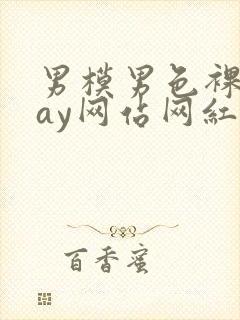 男模男色裸
ay网估网紅
百香蜜